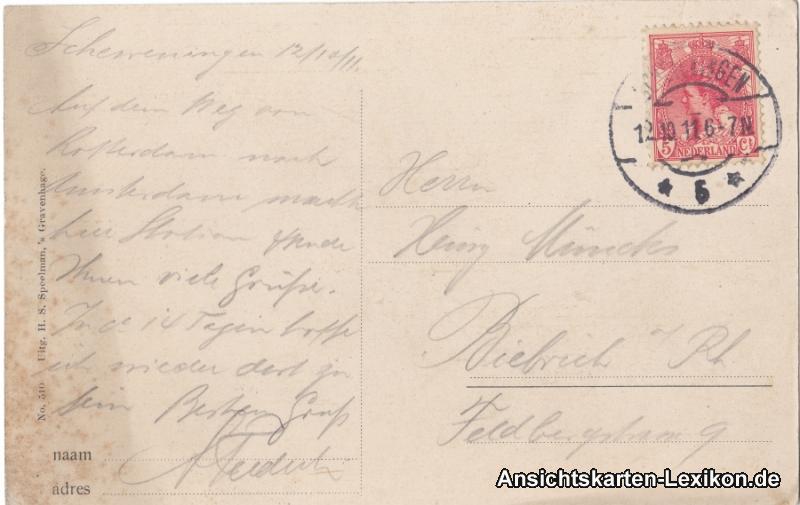 Scheveningen 12/10/11.
Auf dem Weg von
Rotterdam nach
Amsterdam mache
hier Station & sende
Ihnen viele Grüße.
In ca 14 Tagen hoffe
ich wieder dort zu
sein Besten Gruß
naam
adres
No. 510 Uitg. H. S. Speelman, 's Gravenhage.
5 Ct
NEDERLAND
HAGEN
12.10.11 6-7N
* 5 *
Herrn
Heinz
Biebrich a/Rh
Feldbergstrasse 9
Ansichtskarten-Lexikon.de